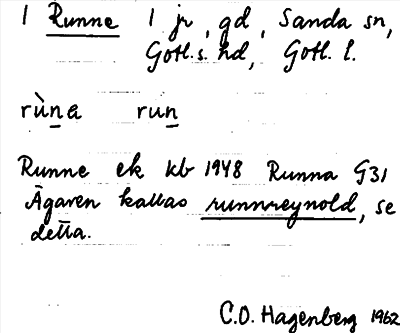 1 Runne 1 jr, gd, Sanda sn,
Gotl. s. hd, Gotl. l.
rùna run
Runne ek kb 1948 Runna G31
Ägaren kallas runnreynold, se
detta.
C.O. Hagenberg 1962